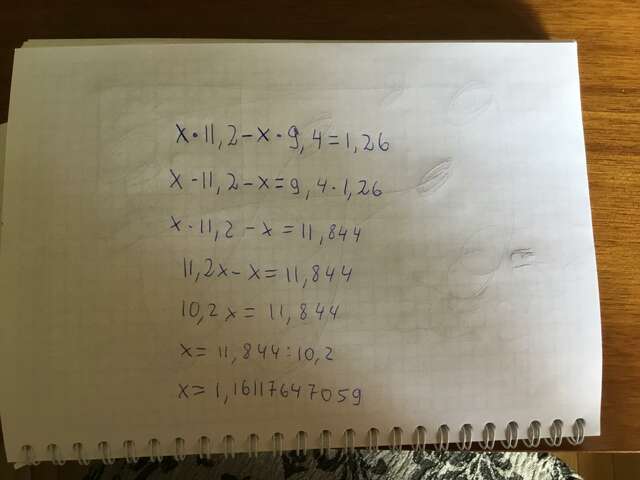 x·11,2-x·9,4=1,26
x·11,2-x=9,4·1,26
x·11,2-x=11,844
11,2x-x=11,844
10,2x=11,844
x=11,844:10,2
x=1,16117647059